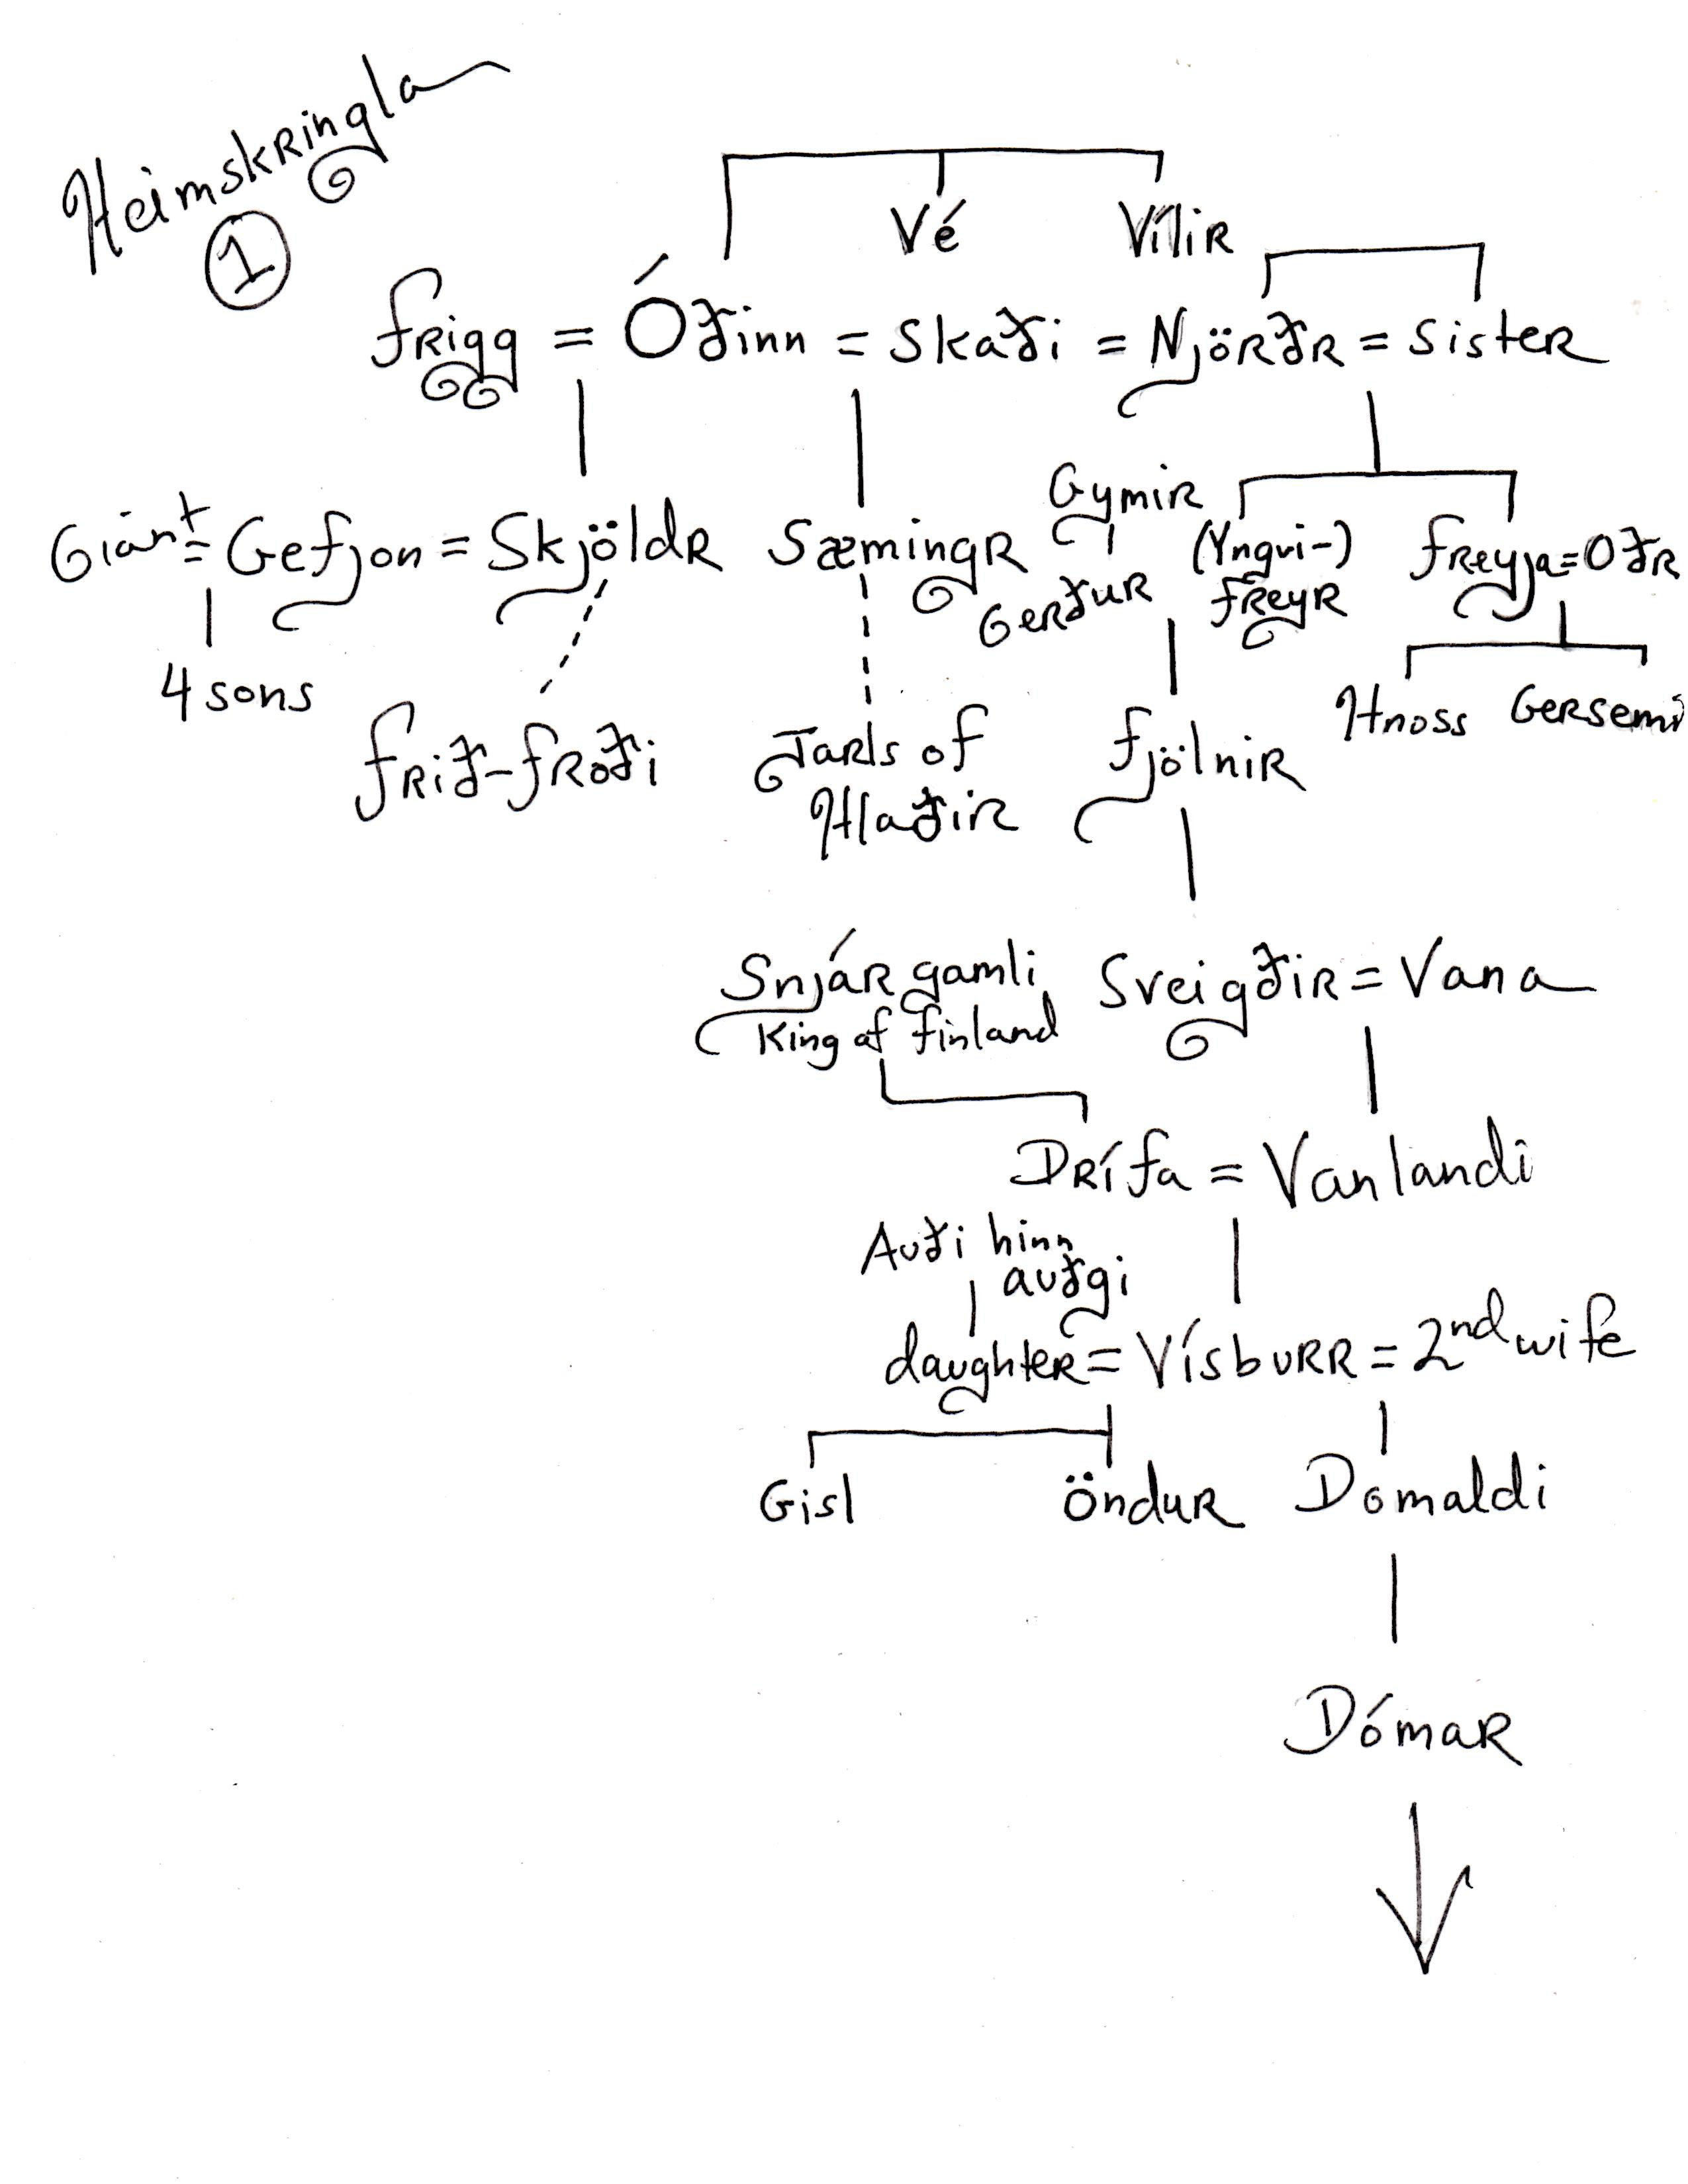 Heimskringla
1
Vé Vílir
Frigg = Óðinn = Skaði = Njörðr = Sister
Gymir
Giant = Gefjon = Skjöldr Sæmingr (Yngvi-) Freyja = Oðr
Gerður Freyr
4 sons
Hnoss Gersemi
Frið-Froði Jarls of Fjölnir
Hlaðir
Snjár gamli Sveigðir = Vana
King of Finland
Drífa = Vanlandi
Auði hinn
auðgi
daughter = Vísburr = 2nd wife
Gisl Öndur Domaldi
Dómar